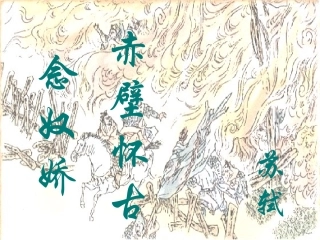 念奴娇
赤壁怀古
苏轼